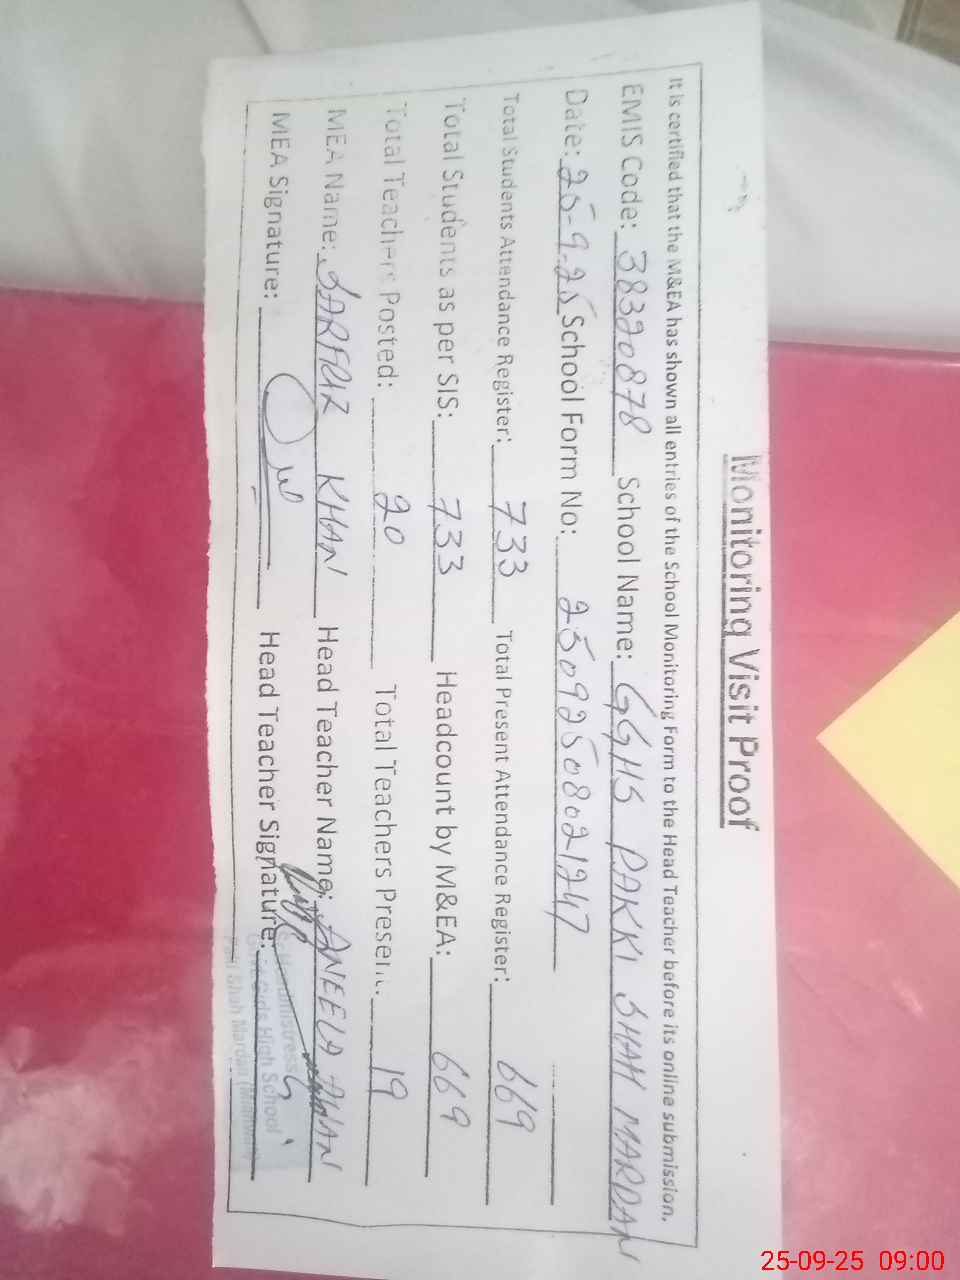 Monitoring Visit Proof
It is certified that the M&EA has shown all entries of the School Monitoring Form to the Head Teacher before its online submission.
EMIS Code: 38320878 School Name: GGHS PAKKI SHAH MARDAN
Date: 25-9-25 School Form No: 25092508021247
Total Students Attendance Register: 733 Total Present Attendance Register: 669
Total Students as per SIS: 733 Headcount by M&EA: 669
Total Teachers Posted: 20 Total Teachers Present: 19
MEA Name: SARFRAZ KHAN Head Teacher Name: ANEELA AWAN
MEA Signature: Head Teacher Signature:
Headmistress
Govt. Girls High School
Pakki Shah Mardan (Mianwali)
25-09-25 09:00